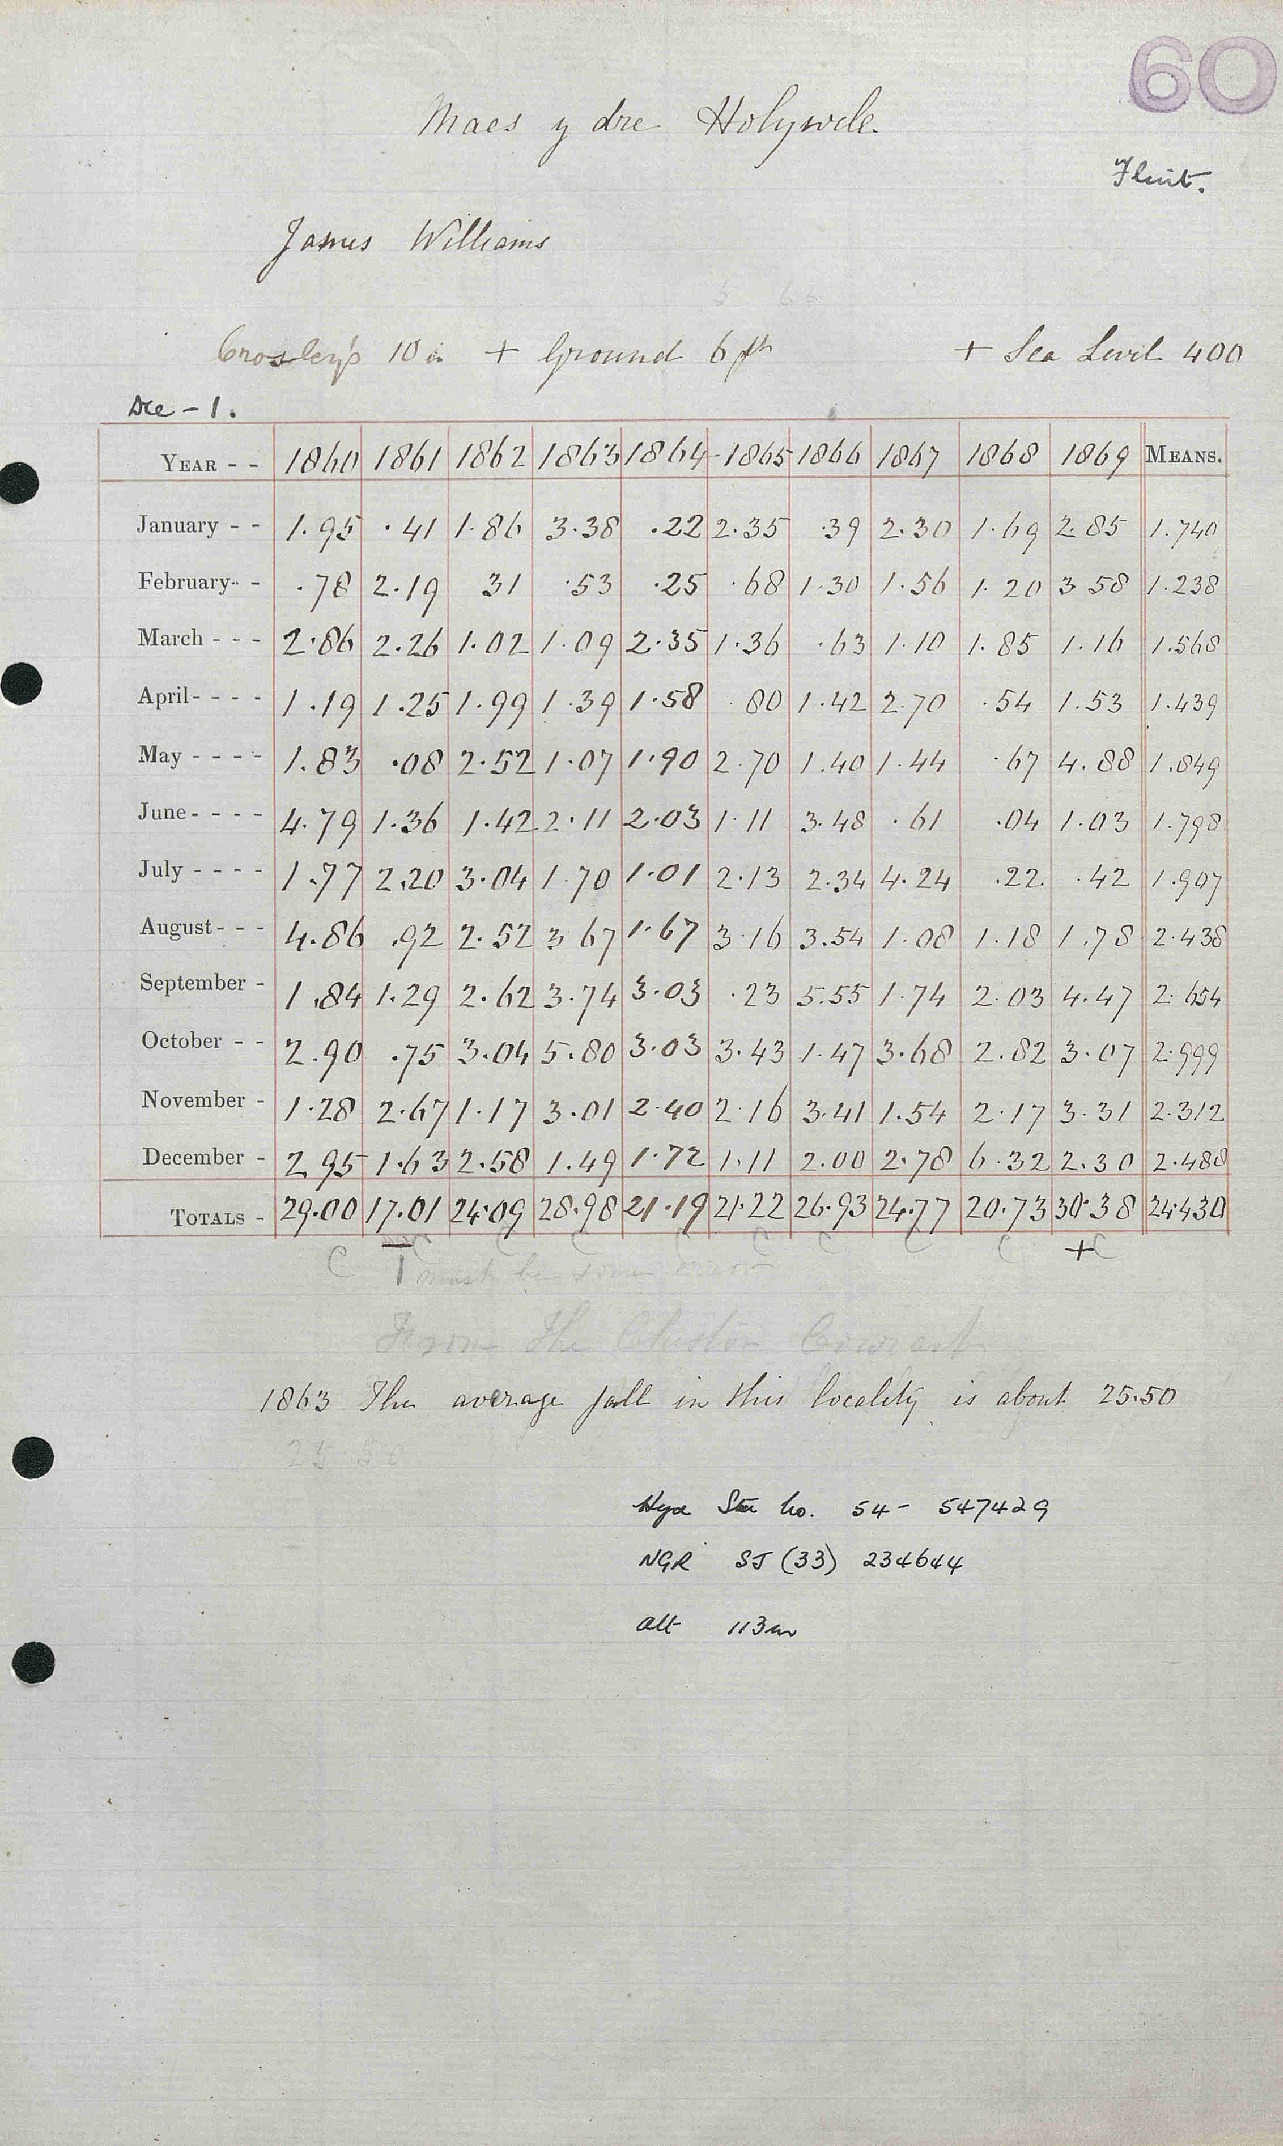 60
Maes y dre Holywell.
Flint.
James Williams
Crosley's 10 in + Ground 6 ft + Sea Level 400
Dec - 1.
YEAR - - 1860 1861 1862 1863 1864 1865 1866 1867 1868 1869 MEANS.
January - - 1.95 .41 1.86 3.38 .22 2.35 .39 2.30 1.69 2.85 1.740
February - - .78 2.19 31 .53 .25 .68 1.30 1.56 1.20 3 58 1.238
March - - - 2.86 2.26 1.02 1.09 2.35 1.36 .63 1.10 1.85 1.16 1.568
April - - - - 1.19 1.25 1.99 1.39 1.58 80 1.42 2.70 .54 1.53 1.439
May - - - - 1.83 .08 2.52 1.07 1.90 2.70 1.40 1.44 .67 4.88 1.849
June - - - - 4.79 1.36 1.42 2.11 2.03 1.11 3.48 .61 .04 1.03 1.798
July - - - - 1.77 2.20 3.04 1.70 1.01 2.13 2.34 4.24 .22 .42 1.907
August - - - 4.86 .92 2.52 3 67 1.67 3.16 3.54 1.08 1.18 1.78 2.438
September - 1.84 1.29 2.62 3.74 3.03 .23 5.55 1.74 2.03 4.47 2.654
October - - 2.90 .75 3.04 5.80 3.03 3.43 1.47 3.68 2.82 3.07 2.999
November - 1.28 2.67 1.17 3.01 2.40 2.16 3.41 1.54 2.17 3.31 2.312
December - 2.95 1.63 2.58 1.49 1.72 1.11 2.00 2.78 6.32 2.30 2.488
TOTALS - 29.00 17.01 24.09 28.98 21.19 21.22 26.93 24.77 20.73 30.38 24.430
C C C C C C C C + C
must be some error
From the Chester Courant
1863 The average fall in this locality is about 25.50
25 50
Hyd Stn No. 54 - 547429
NGR SJ (33) 234644
alt 113m